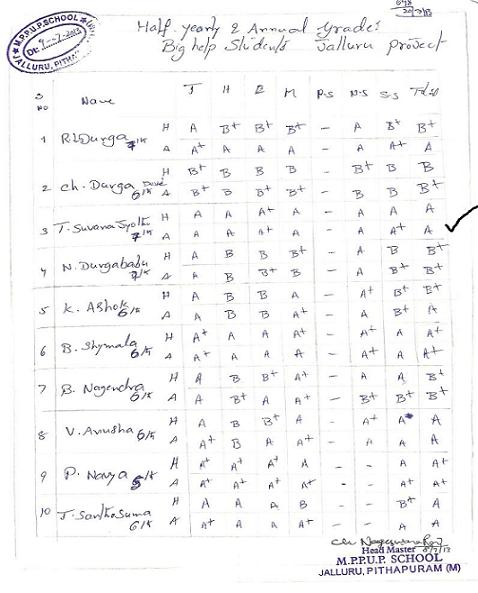 M.P.P.U.P. SCHOOL
Dt:
JALLURU, PITHAPURAM
Half yearly & Annual Grades
Big help Students Jalluru project
S NO Name T H E M P.S N.S S.S Total
1 R.L.Durga 7th H A B+ B+ B+ - A B+ B+
A A+ A A A - A A+ A
2 Ch. Durga Devi 6th H B+ B B B - B+ B B
A B+ B B+ B+ - B B B+
3 T. Suvana Jyothi 7th H A A A+ A - A A A
A A A A+ A - A A+ A ✓
4 N. Durgababu 7th H A B B B+ - A B B+
A A B B+ B - A B+ B+
5 K. Ashok 6th H A B B A - A+ B+ B+
A A B B A+ - A B+ A
6 B. Shymala 6th H A+ A A A+ - A+ A A+
A A+ A A A - A+ A A+
7 B. Nagendra 6th H A B B+ A - A A B+
A A B+ A A+ - B+ B+ B+
8 V. Anusha 6th H A B B+ A - A+ A+ A
A A+ B A A+ - A A A
9 P. Navya 6th H A+ A+ A+ A - - A A+
A A+ A+ A+ A+ - - A A+
10 J. Santhosuma 6th H A A A B - - B+ A
A A+ A A A+ - - A A
Head Master
M.P.P.U.P. SCHOOL
JALLURU, PITHAPURAM (M)